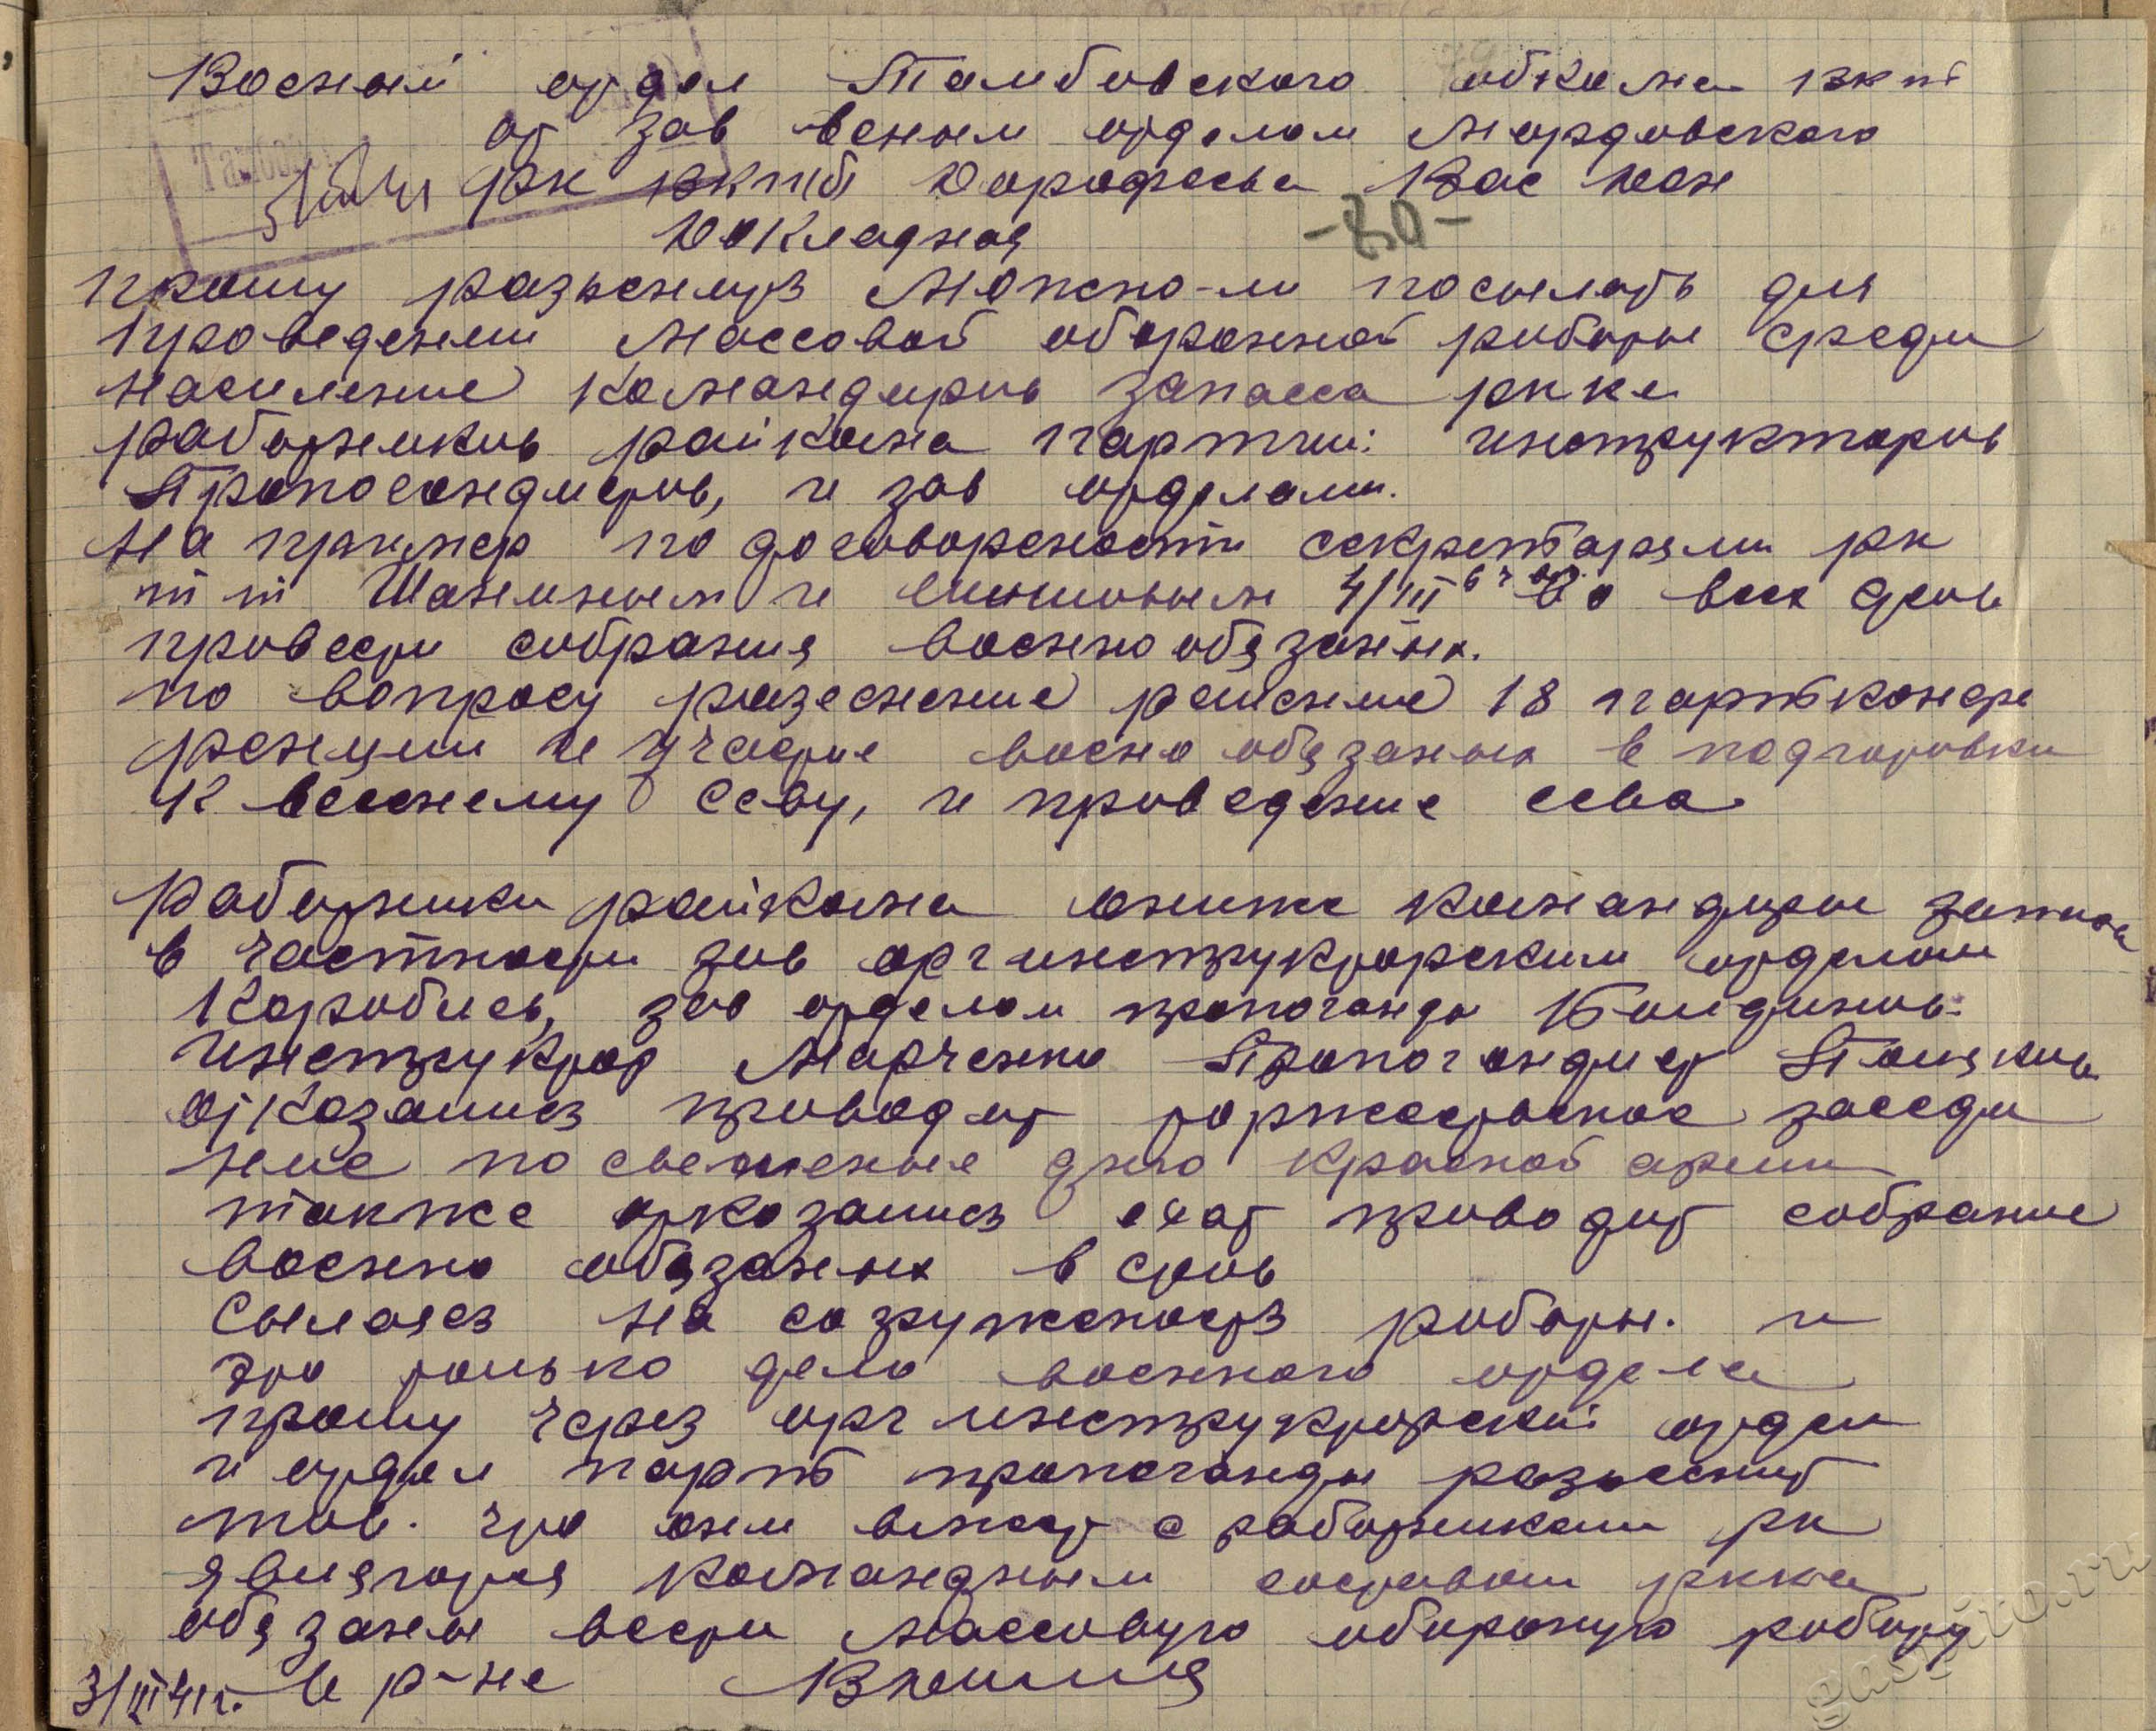 Военый отдел Тамбовского обкома вкпб
от зав военым отделом Мордовского
рк вкпб Дорофеева Вас Иван
Докладная
-20-
прошу разьеснить Можно-ли посылать для
проведении Массовой оборонной работы среди
насиление командиров запасса ркка
работников райкома партии: инструкторов
Пропогандистов, и зав отделами.
На пример по договорености секретарями рк
т т Шаниным и 4/III 6 ч во всех селах
провести собрания военнообязаных.
по вопросу разеснение решение 18 партконфе
ренции и участие военообязаных в подготовки
к весенему севу, и проведение сева
Работники райкома они же командиры запаса
в частности зав орг инструкторским отделом
Коробцев, зав отделом пропоганды
Инструктор Марченко Пропогандист
отказались проводит торжественое заседа
ние посвещеные дню Красной армии
также отказались ехат проводит собрание
военно обязаных в селы
Сылаясь на согруженость работы. и
это только дело военного отдела
прошу через орг инструкторский отдел
и отдел парт пропоганды разьеснит
тов. что они вместе с работниками рк
явлиягются командным составом ркка
обязаны вести Массовую обороную работу
в р-не
3/III 41г.
gaspito.ru